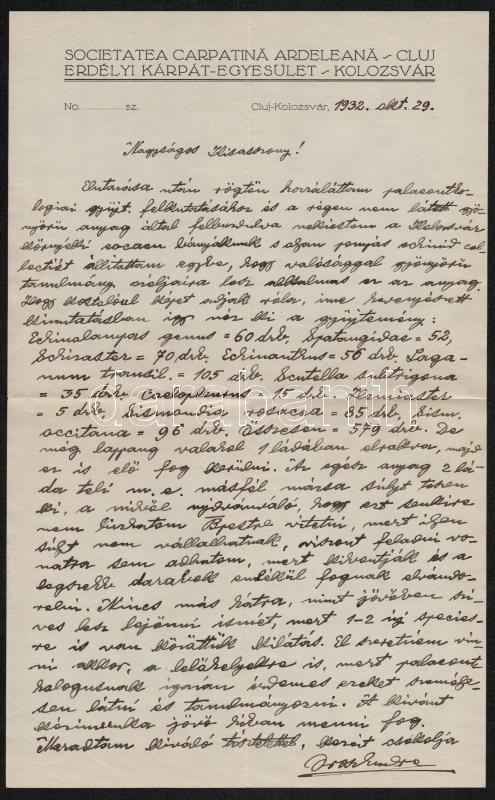 SOCIETATEA CARPATINĂ ARDELEANĂ ~ CLUJ
ERDÉLYI KÁRPÁT-EGYESÜLET ~ KOLOZSVÁR
No. .............. sz. Cluj-Kolozsvár, 1932. okt. 29.
Nagyságos Kisasszony!
Elutazása után rögtön hozzáláttam palaeontho-
logiai gyűjt. felkutatásához és a régen nem látott gyö-
nyörű anyag által felbuzdulva nekiestem a Kolozsvár
környéki eocaen bányáknak s olyan echinid col-
lectiót állítottam egybe, hogy valósággal gyönyörű
tanulmány céljaira lesz alkalmas ez az anyag.
Hogy kóstolóul képet adjak róla, ime
kimutatásban így néz ki a gyűjtemény:
Echinolampas genus = 60 drb. Spatangidae = 52,
Schizaster = 70 drb. Echinanthus = 56 drb. Laga-
num transil. = 105 drb. Scutella subtrigona
= 35 drb. Caelopleurus = 15 drb. Hemiaster
= 5 drb, Sismondia rosacea = 85 drb, Sism.
occitana = 96 drb. Összesen = 579 drb. De
még lappang valahol 1 ládában elrakva, majd
ez is elő fog kerülni. Az egész anyag 2 lá-
da teli m. e. másfél mázsa súlyt teszen
ki, a miből nyilvánvaló, hogy ezt senkire
nem bízhatom Bpestre vitetni, mert ilyen
súlyt nem vállalhatnak, viszont feladni vo-
natra sem adhatom, mert kibontják és a
legszebb darabok emlékül fognak elvándo-
rolni. Nincs más hátra, mint jövőben szi-
ves lesz lejönni ismét, mert 1-2 új species-
re is van köröttük kilátás. El szeretném vin-
ni akkor, a lelőhelyekre is, mert palaeont-
hologusnak igazán érdemes ezeket személye-
sen látni és tanulmányozni. A kívánt
jövő hóban menni fog.
Maradtam kiváló tisztelettel, kezeit csókolja
Orosz Endre